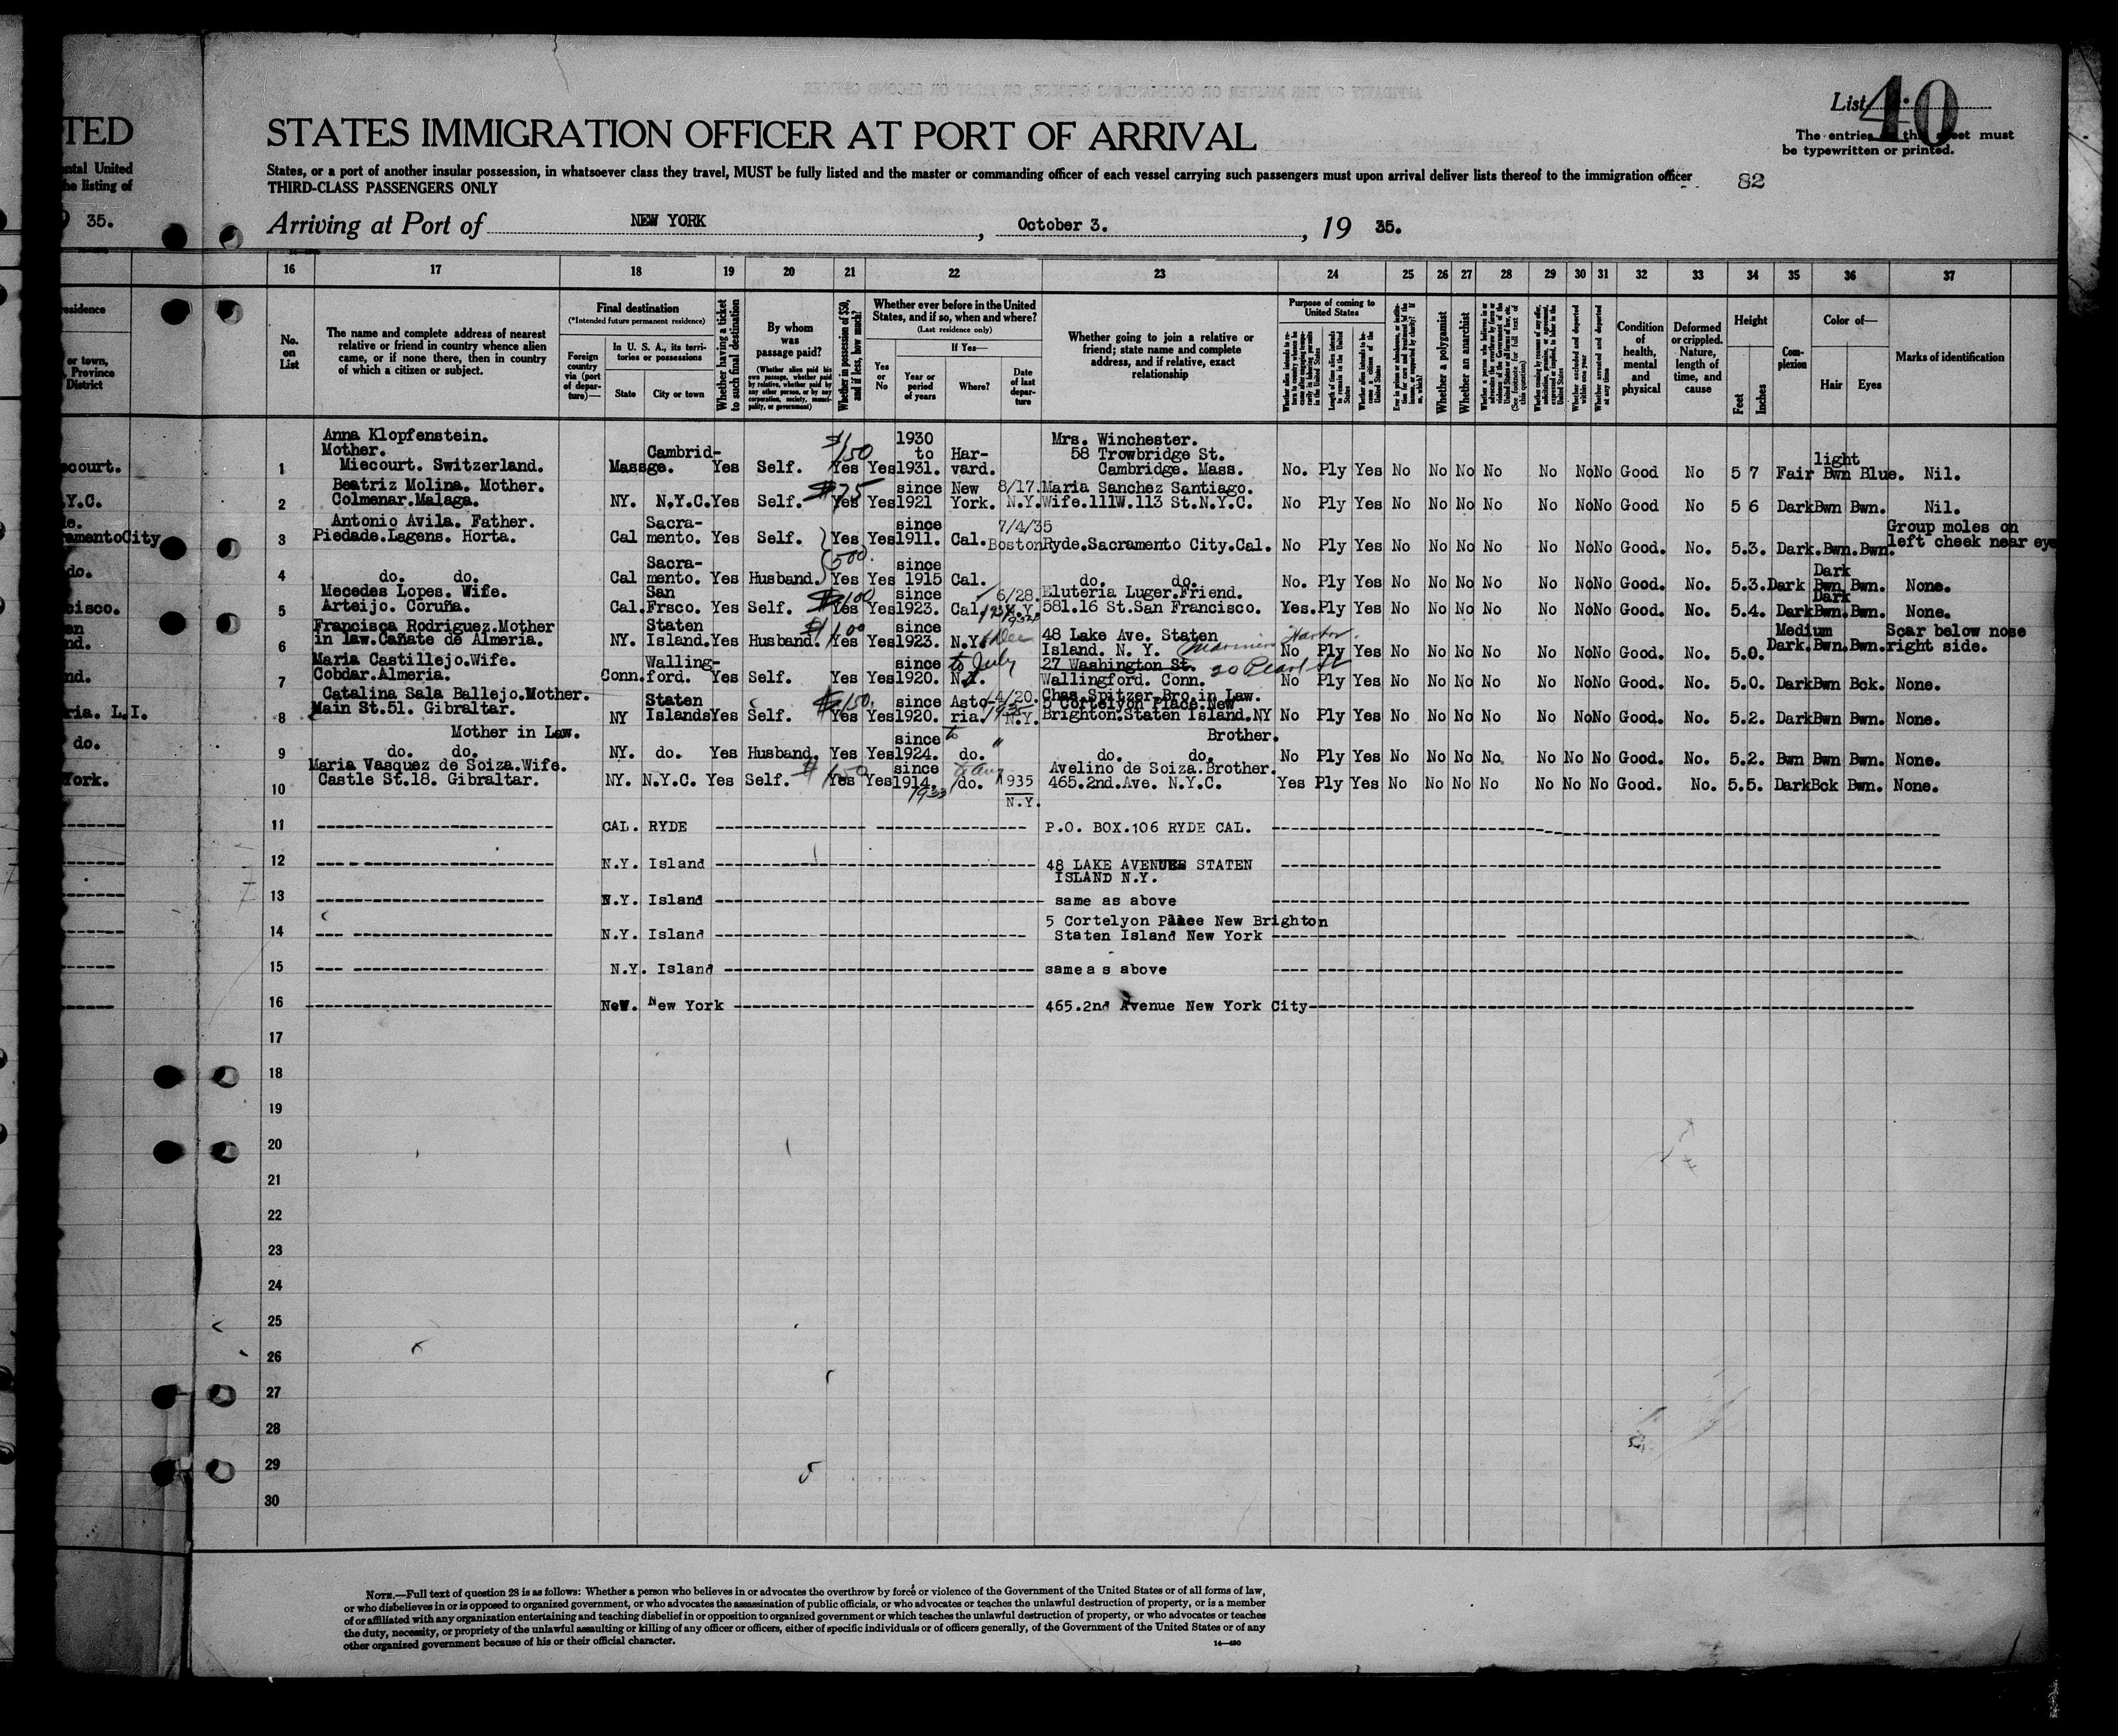 TED
STATES IMMIGRATION OFFICER AT PORT OF ARRIVAL
List 40
The entries on this sheet must
be typewritten or printed.
ental United
he listing of
States, or a port of another insular possession, in whatsoever class they travel, MUST be fully listed and the master or commanding officer of each vessel carrying such passengers must upon arrival deliver lists thereof to the immigration officer
82
THIRD-CLASS PASSENGERS ONLY
35.
Arriving at Port of NEW YORK, October 3., 19 35.
16 17 18 19 20 21 22 23 24 25 26 27 28 29 30 31 32 33 34 35 36 37
No. on List
The name and complete address of nearest relative or friend in country whence alien came, or if none there, then in country of which a citizen or subject.
Final destination
(*Intended future permanent residence)
Foreign country via (port of departure)—
In U. S. A., its territories or possessions
State City or town
Whether having a ticket to such final destination
By whom was passage paid?
(Whether alien paid his own passage, whether paid by relative, whether paid by any other person, or by any corporation, society, municipality, or government)
Whether in possession of $50, and if less, how much?
Whether ever before in the United States, and if so, when and where?
(Last residence only)
Yes or No
If Yes—
Year or period of years
Where?
Date of last departure
Whether going to join a relative or friend; state name and complete address, and if relative, exact relationship
Purpose of coming to United States
Length of time alien intends to remain in the United States
Whether alien intends to become a citizen of the United States
Whether a polygamist
Whether an anarchist
Condition of health, mental and physical
Deformed or crippled. Nature, length of time, and cause
Height
Feet Inches
Complexion
Color of—
Hair Eyes
Marks of identification
1 Anna Klopfenstein.
Mother.
Miecourt. Switzerland.
Mass Cambridge. Yes Self. $150 Yes Yes 1930 to 1931. Harvard. Mrs. Winchester. 58 Trowbridge St. Cambridge. Mass. No. Ply Yes No No No No No No No Good No 5 7 Fair light Bwn Blue. Nil.
2 Beatriz Molina. Mother.
Colmenar.Malaga.
NY. N.Y.C. Yes Self. $75 Yes Yes since 1921 New York. 8/17. N.Y. Maria Sanchez Santiago. Wife.111W.113 St.N.Y.C. No Ply Yes No No No No No No No Good No 5 6 Dark Bwn Bwn. Nil.
3 Antonio Avila. Father.
Piedade.Lagens. Horta.
Cal Sacramento. Yes Self. Yes Yes since 1911. Cal. 7/4/35 Boston Ryde.Sacramento City.Cal. No Ply Yes No No No No No No No Good. No. 5.3. Dark.Bwn.Bwn. Group moles on left cheek near eye
500.
4 do. do.
Cal Sacramento. Yes Husband. Yes Yes since 1915 Cal. do. do. No. Ply Yes No No No No No No No Good. No. 5.3. Dark Dark Bwn Bwn. None.
5 Mecedes Lopes. Wife.
Arteijo. Coruña.
Cal. San Frsco. Yes Self. $100 Yes Yes since 1923. Cal. 6/28. N.Y. Eluteria Luger.Friend. 581.16 St.San Francisco. Yes. Ply Yes No No No No No No No Good. No. 5.4. Dark Dark Bwn. Bwn. None.
6 Francisca Rodriguez.Mother
in law.Cañate de Almeria.
NY. Staten Island. Yes Husband. $100 Yes Yes since 1923. N.Y. 48 Lake Ave. Staten Island. N. Y. Mariners Harbor. No Ply Yes No No No No No No No Good. No. 5.0. Medium Dark. Bwn. Bwn. Scar below nose right side.
7 Maria Castillejo.Wife.
Cobdar.Almeria.
Conn. Wallingford. Yes Self. Yes Yes since 1920. to July 27 Washington St. 20 Pearl St Wallingford. Conn. No Ply Yes No No No No No No No Good. No. 5.0. Dark Bwn Bck. None.
8 Catalina Sala Ballejo.Mother.
Main St.51. Gibraltar.
NY Staten Islands Yes Self. $150. Yes Yes since 1920. Astoria. 4/20. N.Y. Chas.Spitzer.Bro.in Law. 5 Cortelyon Place.New Brighton.Staten Island.NY No Ply Yes No No No No No No No Good. No. 5.2. Dark Bwn Bwn. None.
9 Mother in Law.
do. do.
NY. do. Yes Husband. Yes Yes since 1924. do. Brother. do. do. No Ply Yes No No No No No No No Good. No. 5.2. Bwn Bwn Bwn. None.
10 Maria Vasquez de Soiza.Wife.
Castle St.18. Gibraltar.
NY. N.Y.C. Yes Self. Yes Yes since 1914. do. 1935 N.Y. Avelino de Soiza.Brother. 465.2nd.Ave. N.Y.C. Yes Ply Yes No No No No No No No Good. No. 5.5. Dark Bck Bwn. None.
11 CAL. RYDE P.O. BOX.106 RYDE CAL.
12 N.Y. Island 48 LAKE AVENUE STATEN
ISLAND N.Y.
13 N.Y. Island same as above
14 N.Y. Island 5 Cortelyon Place New Brighton
Staten Island New York
15 N.Y. Island same a s above
16 New. New York 465.2nd Avenue New York City
17
18
19
20
21
22
23
24
25
26
27
28
29
30
NOTE.—Full text of question 28 is as follows: Whether a person who believes in or advocates the overthrow by force or violence of the Government of the United States or of all forms of law,
or who disbelieves in or is opposed to organized government, or who advocates the assassination of public officials, or who advocates or teaches the unlawful destruction of property, or is a member
of or affiliated with any organization entertaining and teaching disbelief in or opposition to organized government or which teaches the unlawful destruction of property, or who advocates or teaches
the duty, necessity, or propriety of the unlawful assaulting or killing of any officer or officers, either of specific individuals or of officers generally, of the Government of the United States or of any
other organized government because of his or their official character.
14—430